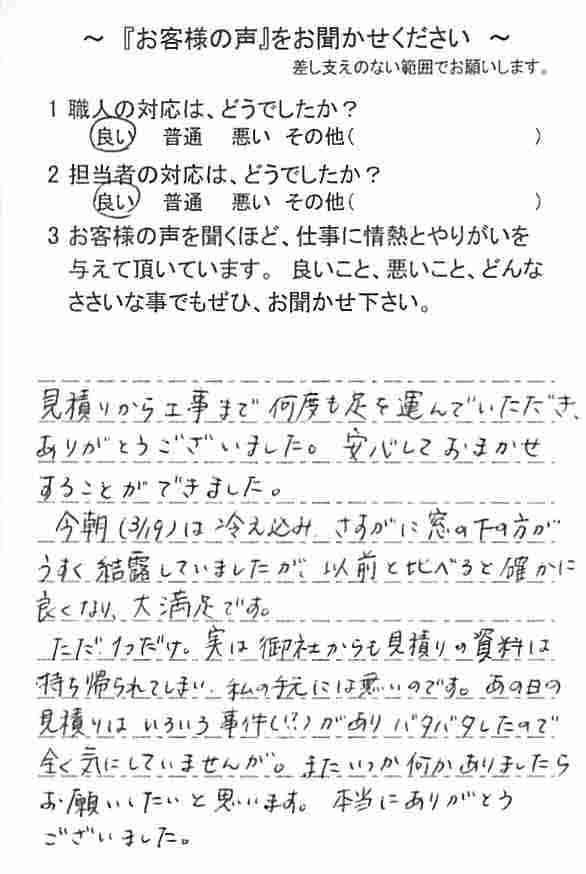 ～ 『お客様の声』をお聞かせください ～
差し支えのない範囲でお願いします。
1 職人の対応は、どうでしたか？
良い 普通 悪い その他( )
2 担当者の対応は、どうでしたか？
良い 普通 悪い その他( )
3 お客様の声を聞くほど、仕事に情熱とやりがいを
与えて頂いています。 良いこと、悪いこと、どんな
ささいな事でもぜひ、お聞かせ下さい。
見積りから工事まで何度も足を運んでいただき、
ありがとうございました。 安心しておまかせ
することができました。
今朝(3/19)は冷え込み、さすがに窓の下の方が
うすく結露していましたが、以前と比べると確かに
良くなり、大満足です。
ただ1つだけ。実は御社からも見積りの資料は
持ち帰られてしまい、私の手元には無いのです。あの日の
見積りはいろいろ事件(!?)がありバタバタしたので
全く気にしていませんが。またいつか何かありましたら
お願いしたいと思います。 本当にありがとう
ございました。